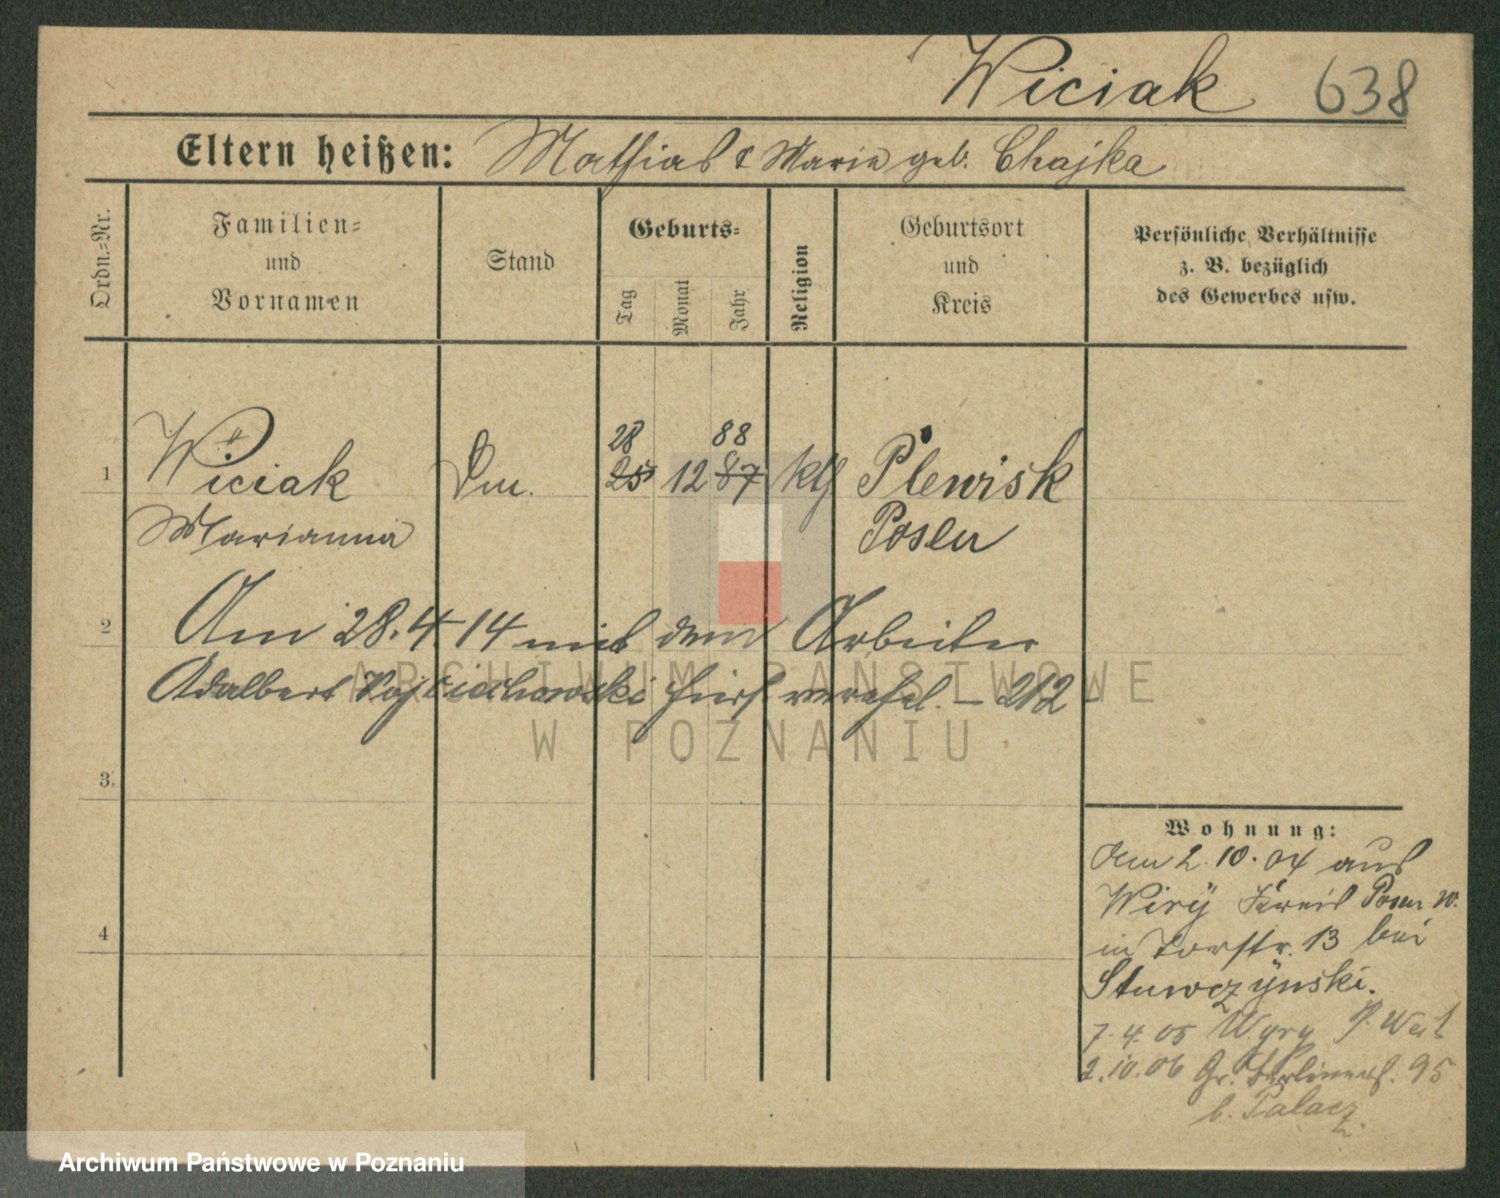 Wiciak 638
Eltern heißen: Mathias & Marie geb. Chajka
Ordn.-Nr.
Familien-
und
Vornamen
Stand
Geburts-
Tag
Monat
Jahr
Religion
Geburtsort
und
Kreis
Persönliche Verhältnisse
z. B. bezüglich
des Gewerbes usw.
28 88
1 Wiciak 25 12 87 kth Plewisk
Marianna Posen
2 Am 28.4.14 mit dem Arbeiter
Adalbert Wojciechowski hier verehel. – 212
3.
4
Wohnung:
Am 2.10.04 aus
Wiry Kreis Posen W.
in Torstr. 13 bei
7.4.05 Wyry P. West
2.10.06 Gr. Berlinerst. 95
b. Palacz.
ARCHIWUM PAŃSTWOWE
W POZNANIU
Archiwum Państwowe w Poznaniu